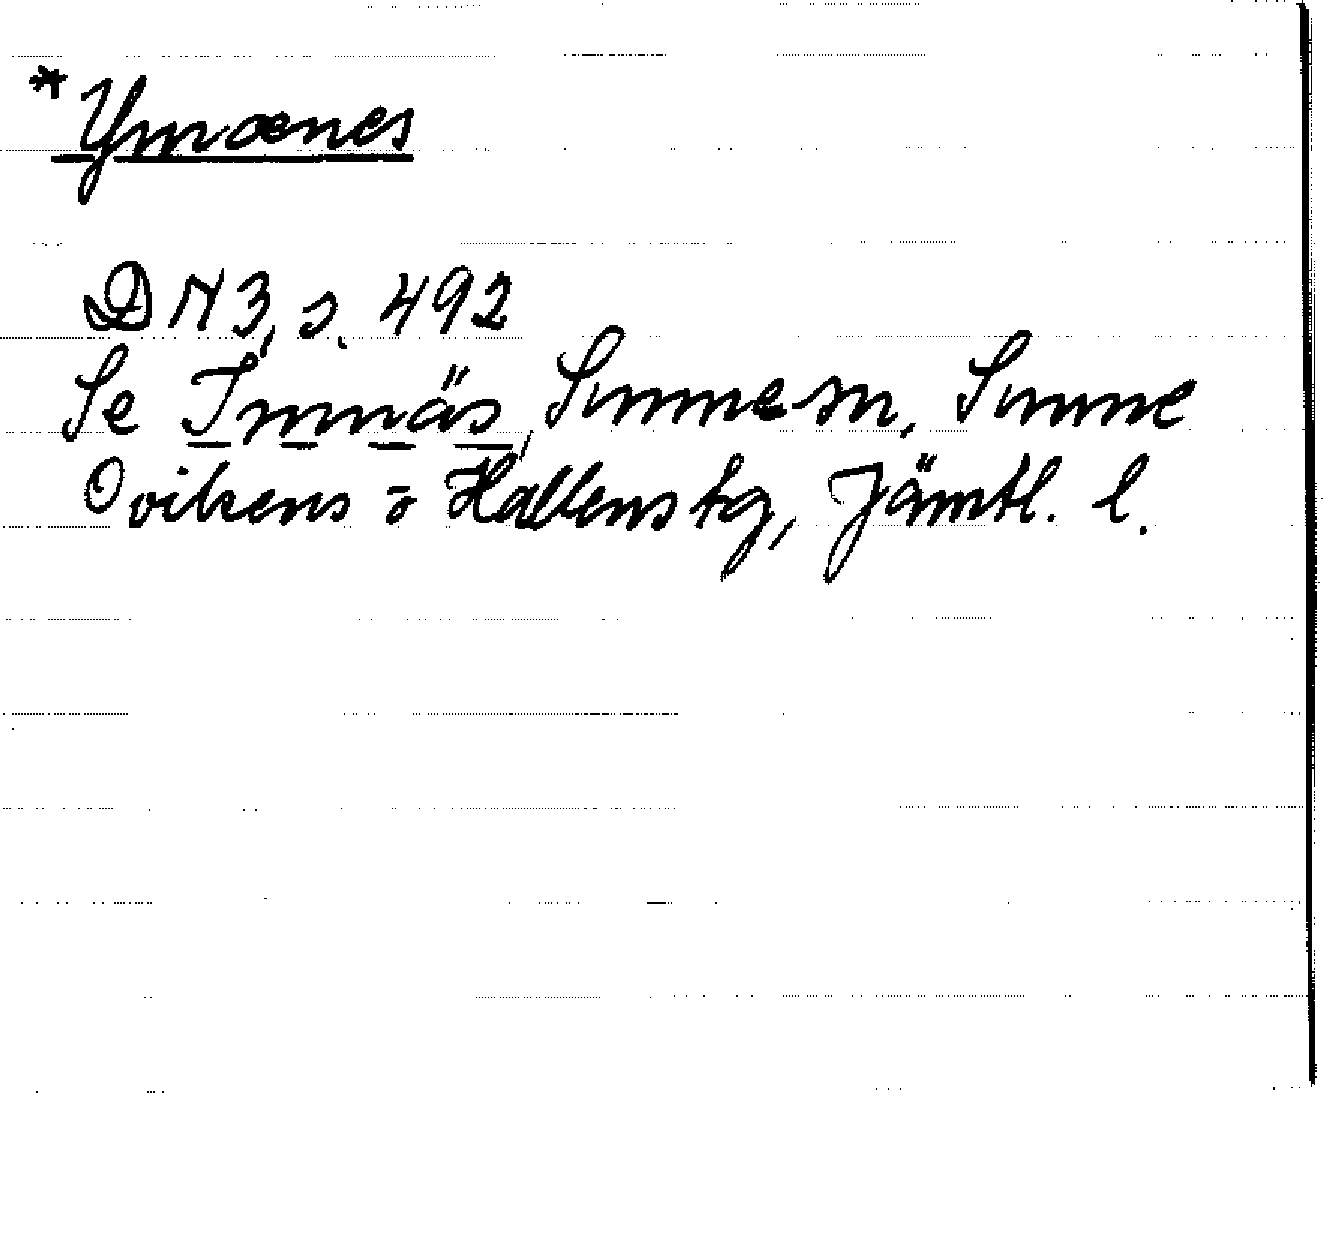 *Ymænes
DN 3, s. 492
Se Immnäs, Sunne sn, Sunne
Ovikens o Hallens tg, Jämtl. l.